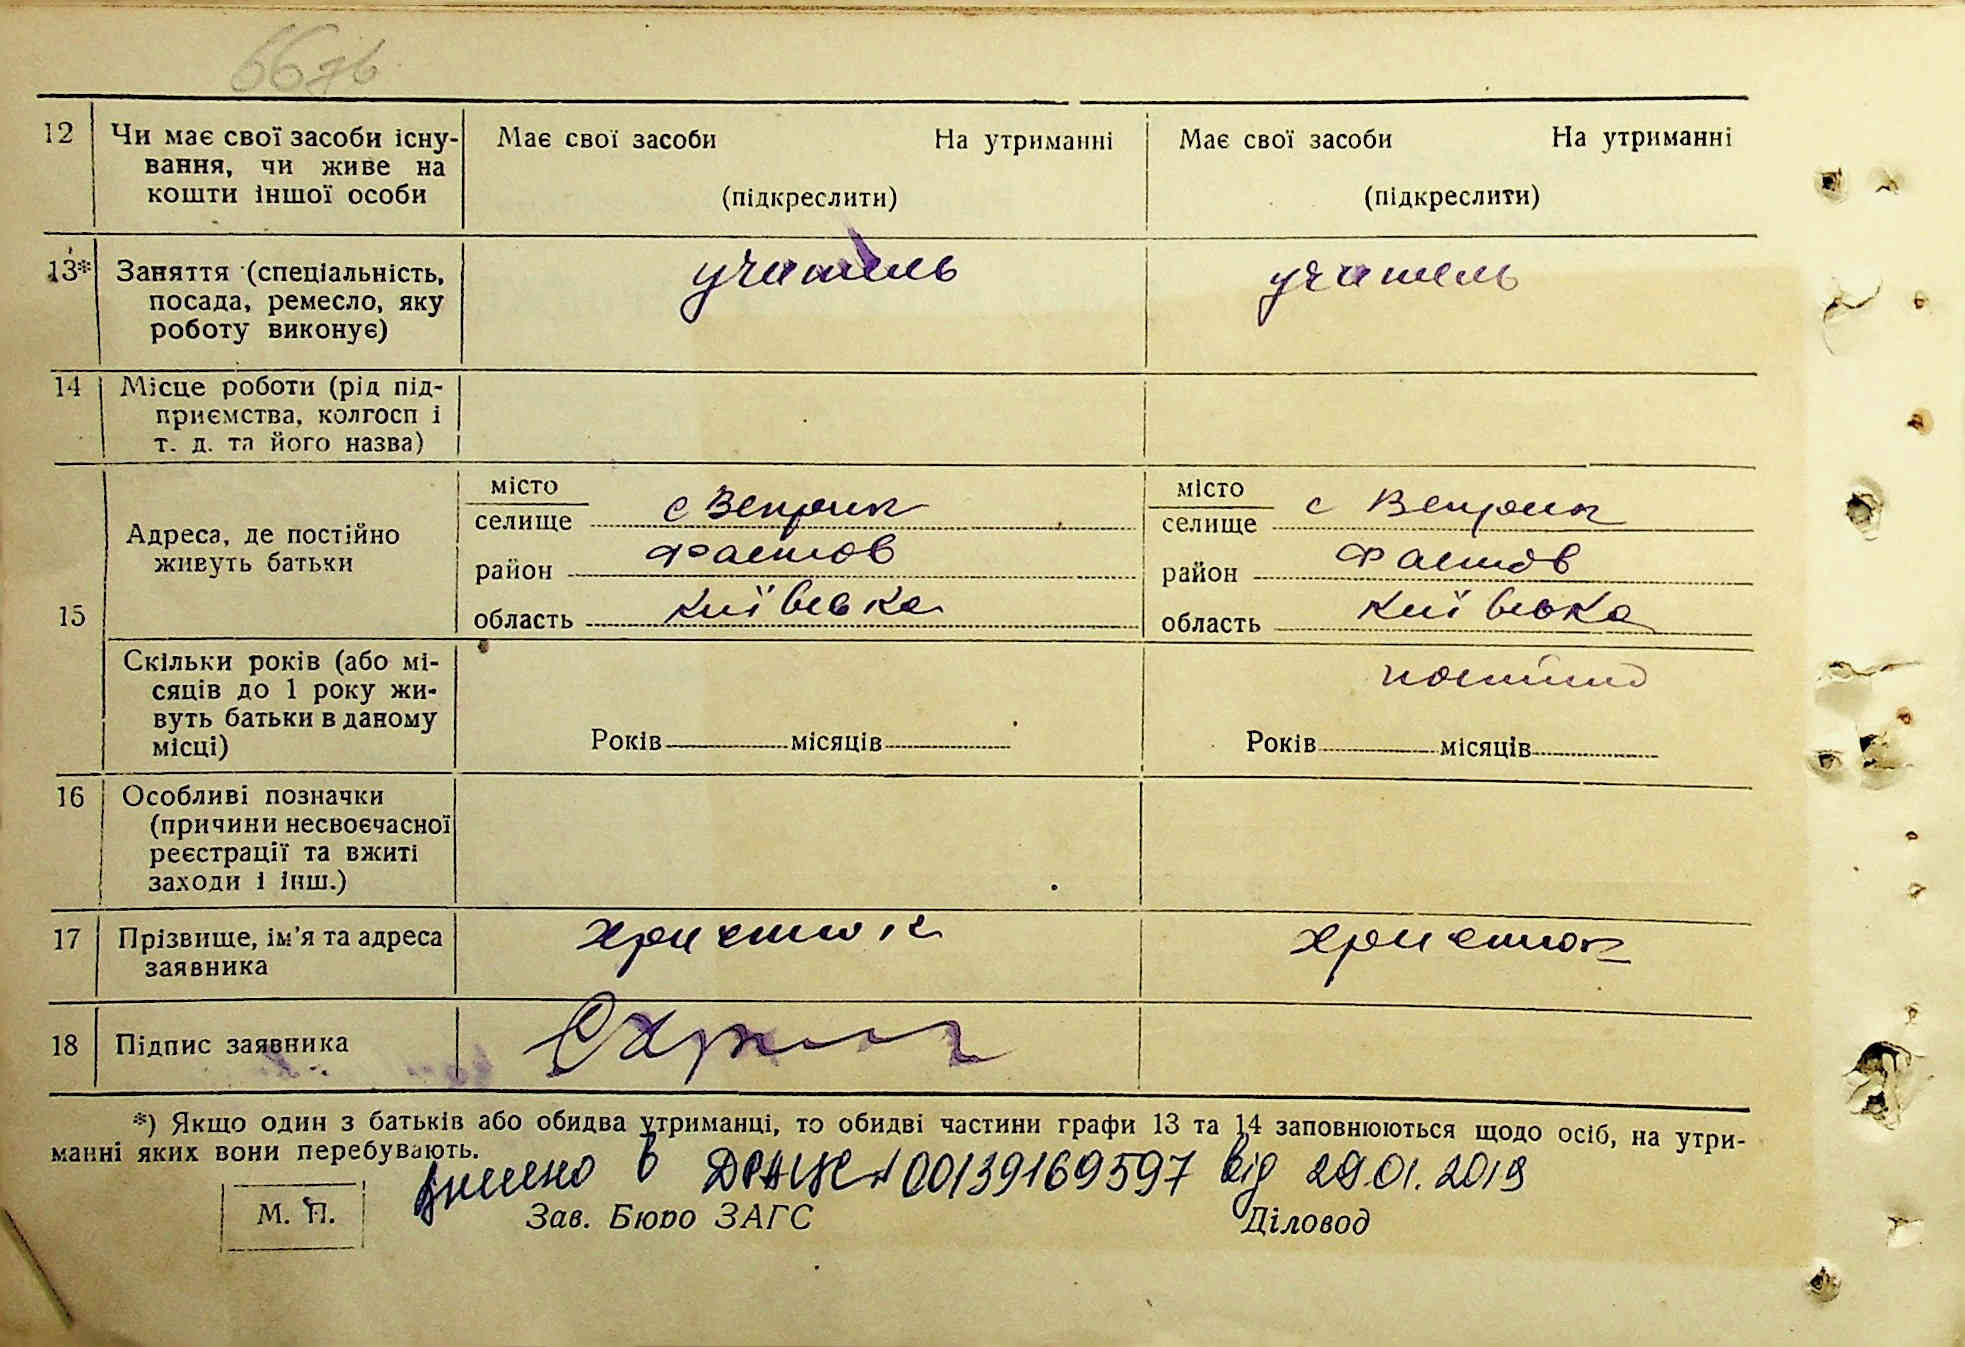 66 зв
12 Чи має свої засоби існу- Має свої засоби На утриманні Має свої засоби На утриманні
вання, чи живе на
кошти іншої особи (підкреслити) (підкреслити)
13* Заняття (спеціальність, учитель учитель
посада, ремесло, яку
роботу виконує)
14 Місце роботи (рід під-
приємства, колгосп і
т. д. та його назва)
місто місто
селище с Веприк селище с Веприк
Адреса, де постійно
живуть батьки
район Фастов район Фастов
15 область Київська область Київська
Скільки років (або мі- постійно
сяців до 1 року жи-
вуть батьки в даному
місці) Років місяців Років місяців
16 Особливі позначки
(причини несвоєчасної
реєстрації та вжиті
заходи і інш.)
17 Прізвище, ім'я та адреса Христюк Христюк
заявника
18 Підпис заявника
*) Якщо один з батьків або обидва утриманці, то обидві частини графи 13 та 14 заповнюються щодо осіб, на утри-
манні яких вони перебувають.
внесено в ДРАЦС № 00139169597 від 29.01.2019
М. П. Зав. Бюро ЗАГС Діловод